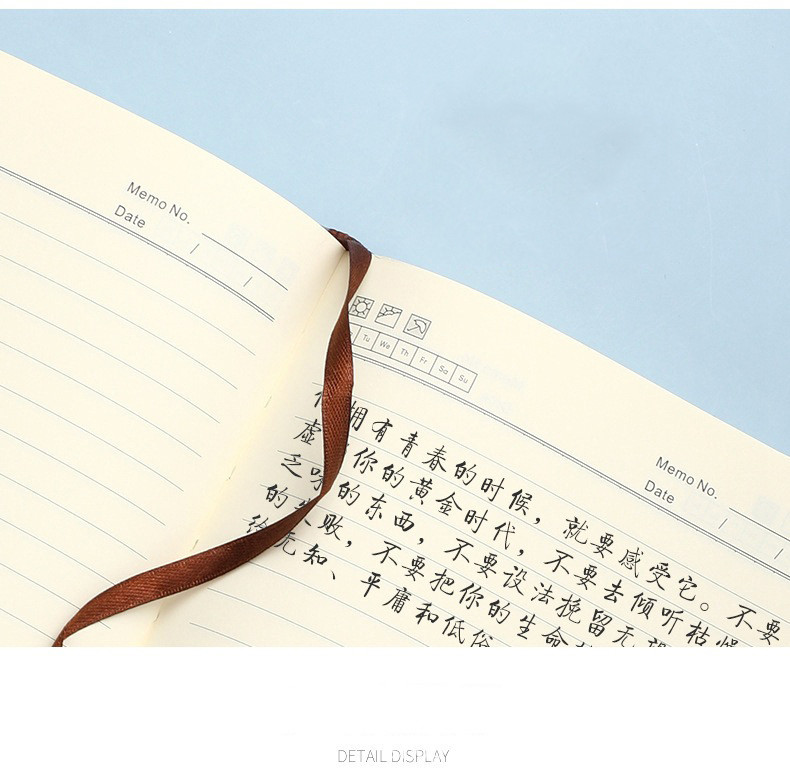 Memo No.
Date / /
Tu We Th Fr Sa Su
Memo No.
Date / /
拥有青春的时候，就要感受它。不要
虚 你的黄金时代，不要去倾听枯燥
乏味的东西，不要设法挽留无
的 败，不要把你的生命
给无知、平庸和低俗
DETAIL DISPLAY